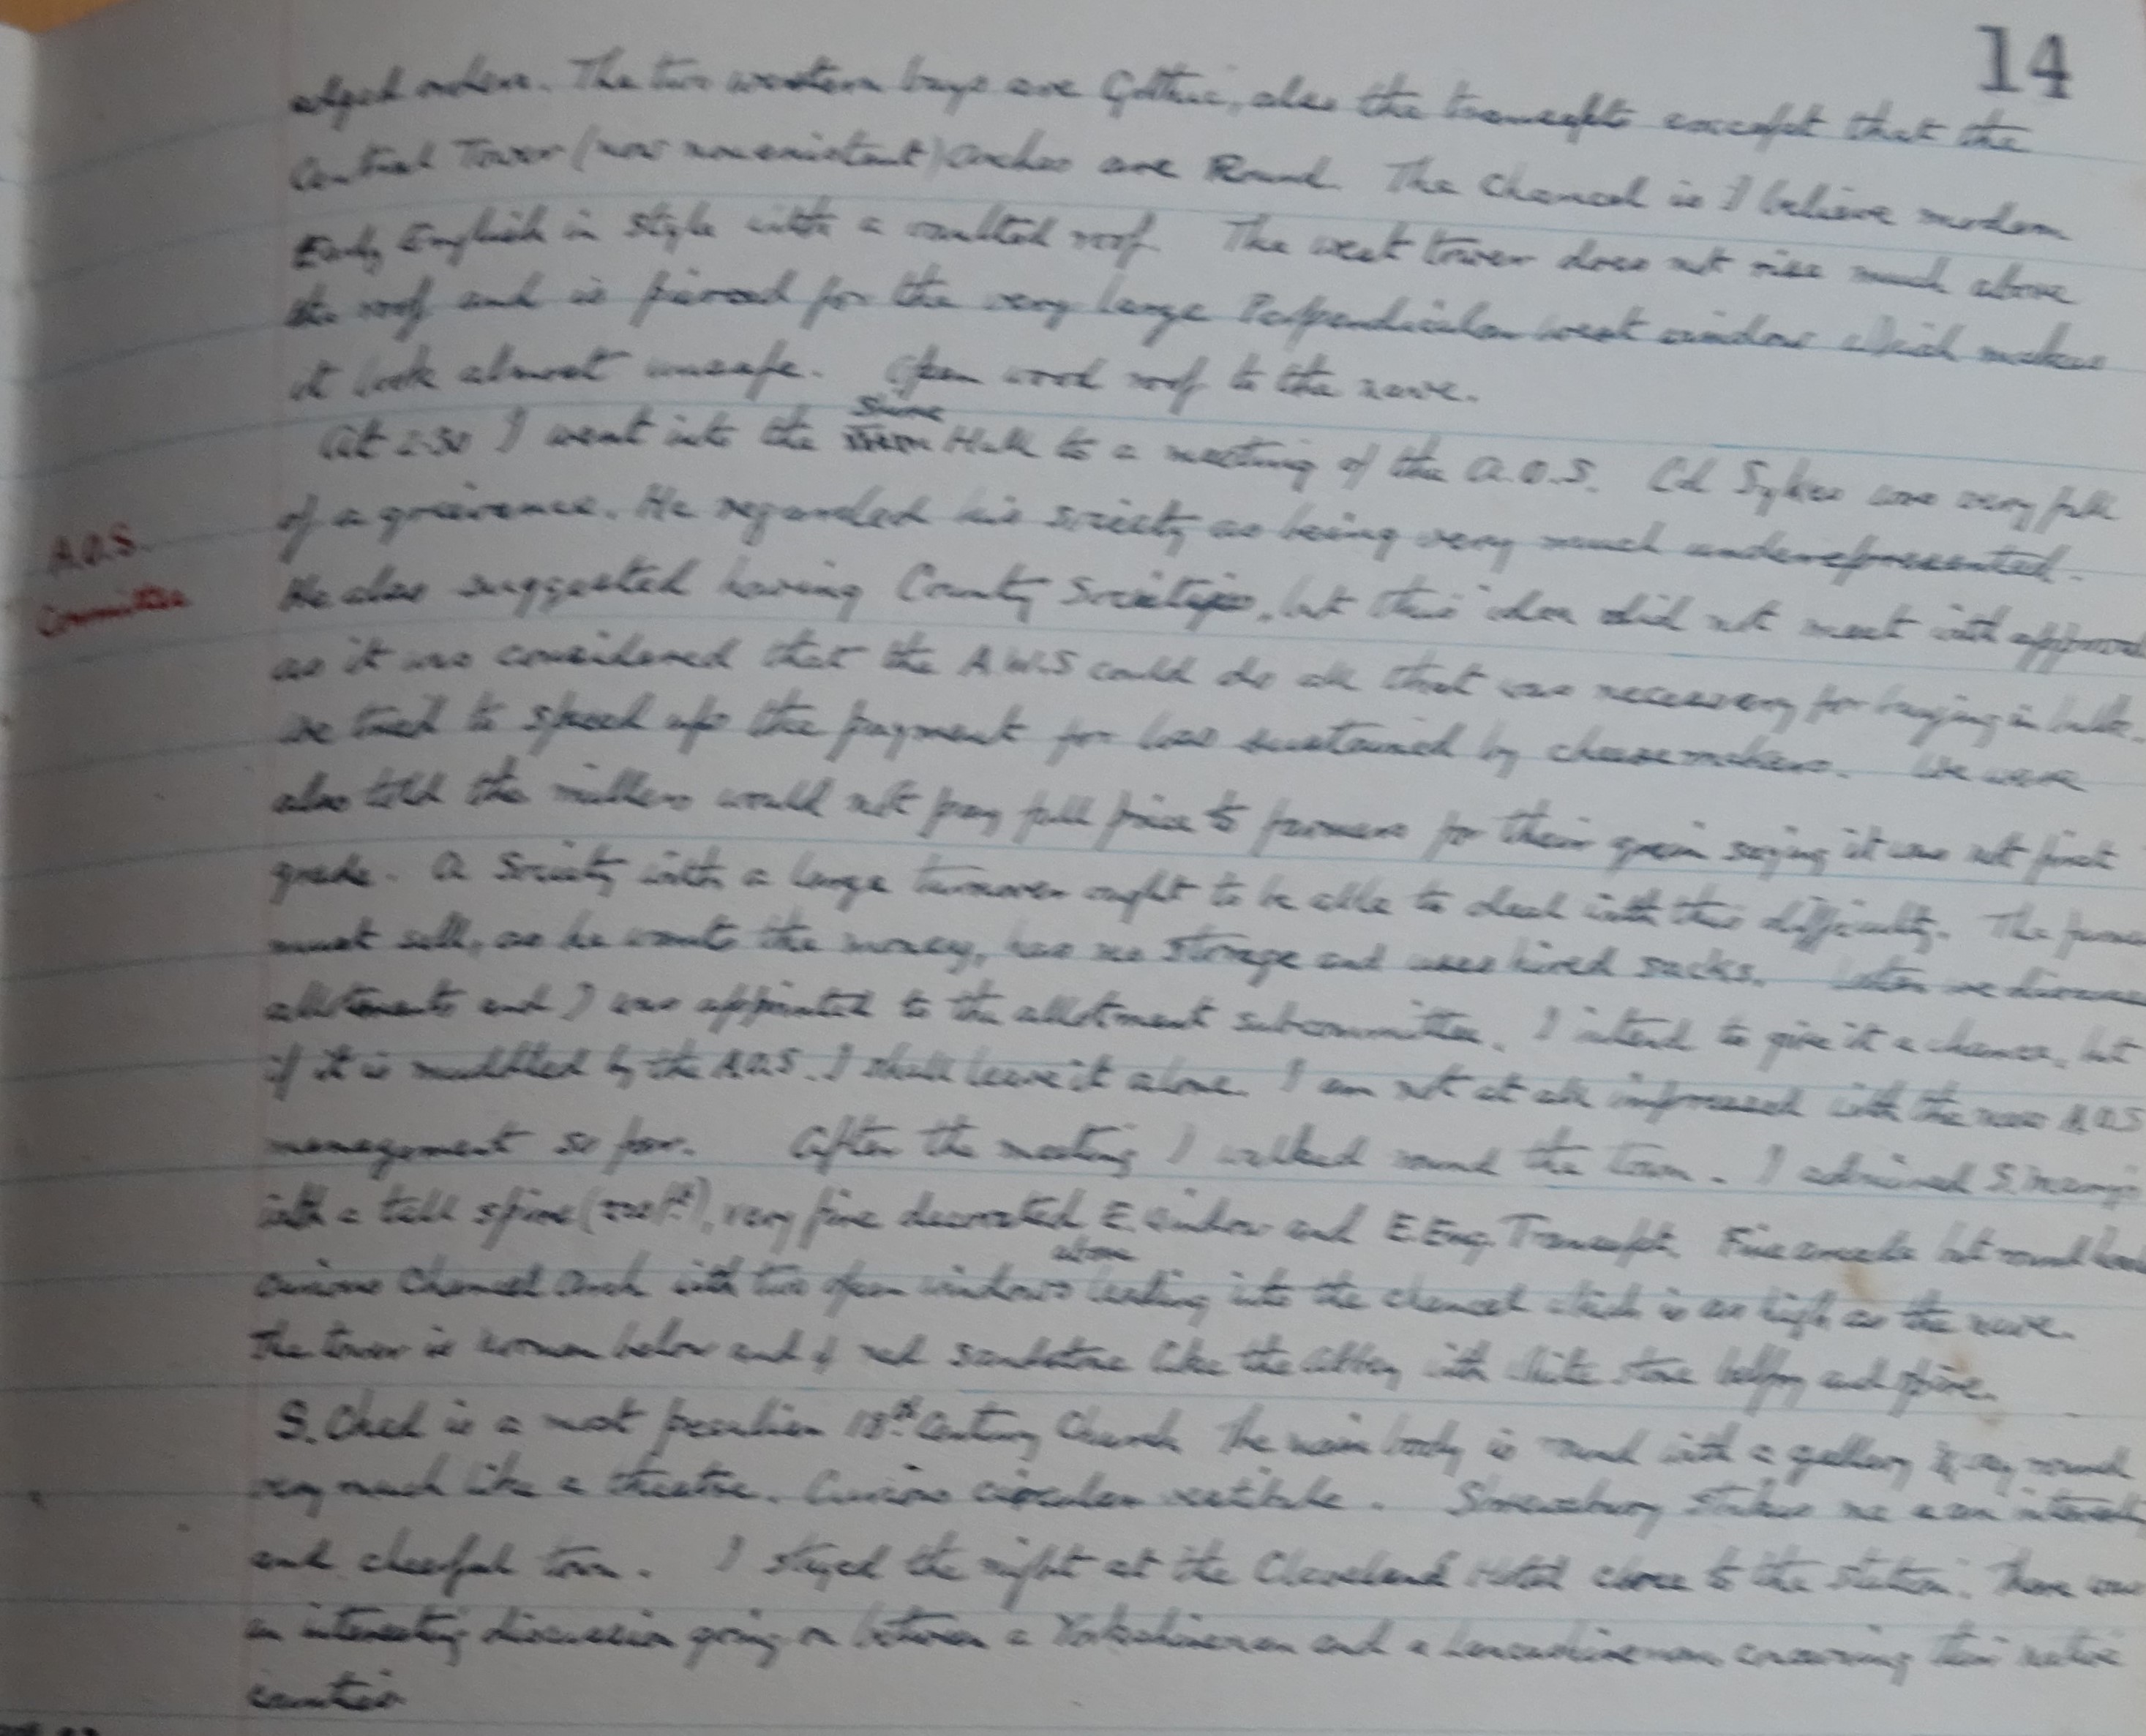 14
edged orders. The two western bays are Gothic, also the transepts except that the
Central Tower (now nonexistent) arches are Round. The Chancel is I believe modern
Early English in style with a vaulted roof. The west tower does not rise much above
the roof and is pierced for the very large Perpendicular west window which makes
it look almost unsafe. Open wood roof to the nave.
At 2.30 I went into the Shire Hall to a meeting of the A.O.S. Col Sykes was very full
of a grievance. He regarded his society as being very much underrepresented.
A.O.S.
Committee
He also suggested having County Societies, but this idea did not meet with approval
as it was considered that the A.W.S could do all that was necessary for buying in bulk.
We tried to speed up the payment for loss sustained by cheesemakers. We were
also told the millers would not pay full price to farmers for their grain saying it was not first
grade. A Society with a large turnover ought to be able to deal with this difficulty. The farmer
must sell, as he wants the money, has no storage and uses hired sacks. Later we discussed
allotments and I was appointed to the allotment subcommittee. I intend to give it a chance, but
if it is muddled by the A.O.S. I shall leave it alone. I am not at all impressed with the new A.O.S
management so far. After the meeting I walked round the town. I admired S. Mary's
with a tall spire (220ft.), very fine decorated E. window and E.Eng. Transept. Fine arcade but round
curious Chancel arch with two open windows above leading into the chancel which is as high as the nave.
The tower is Norman below and of red sandstone like the Abbey with white stone belfry and spire.
S. Chad is a most peculiar 18th Century Church The main body is round with a gallery round
very much like a theatre. Curious circular vestibule. Shrewsbury strikes me as an interesting
and cheerful town. I stayed the night at the Cleveland Hotel close to the station. There was
an interesting discussion going on between a Yorkshireman and a Lancashireman concerning their native
counties